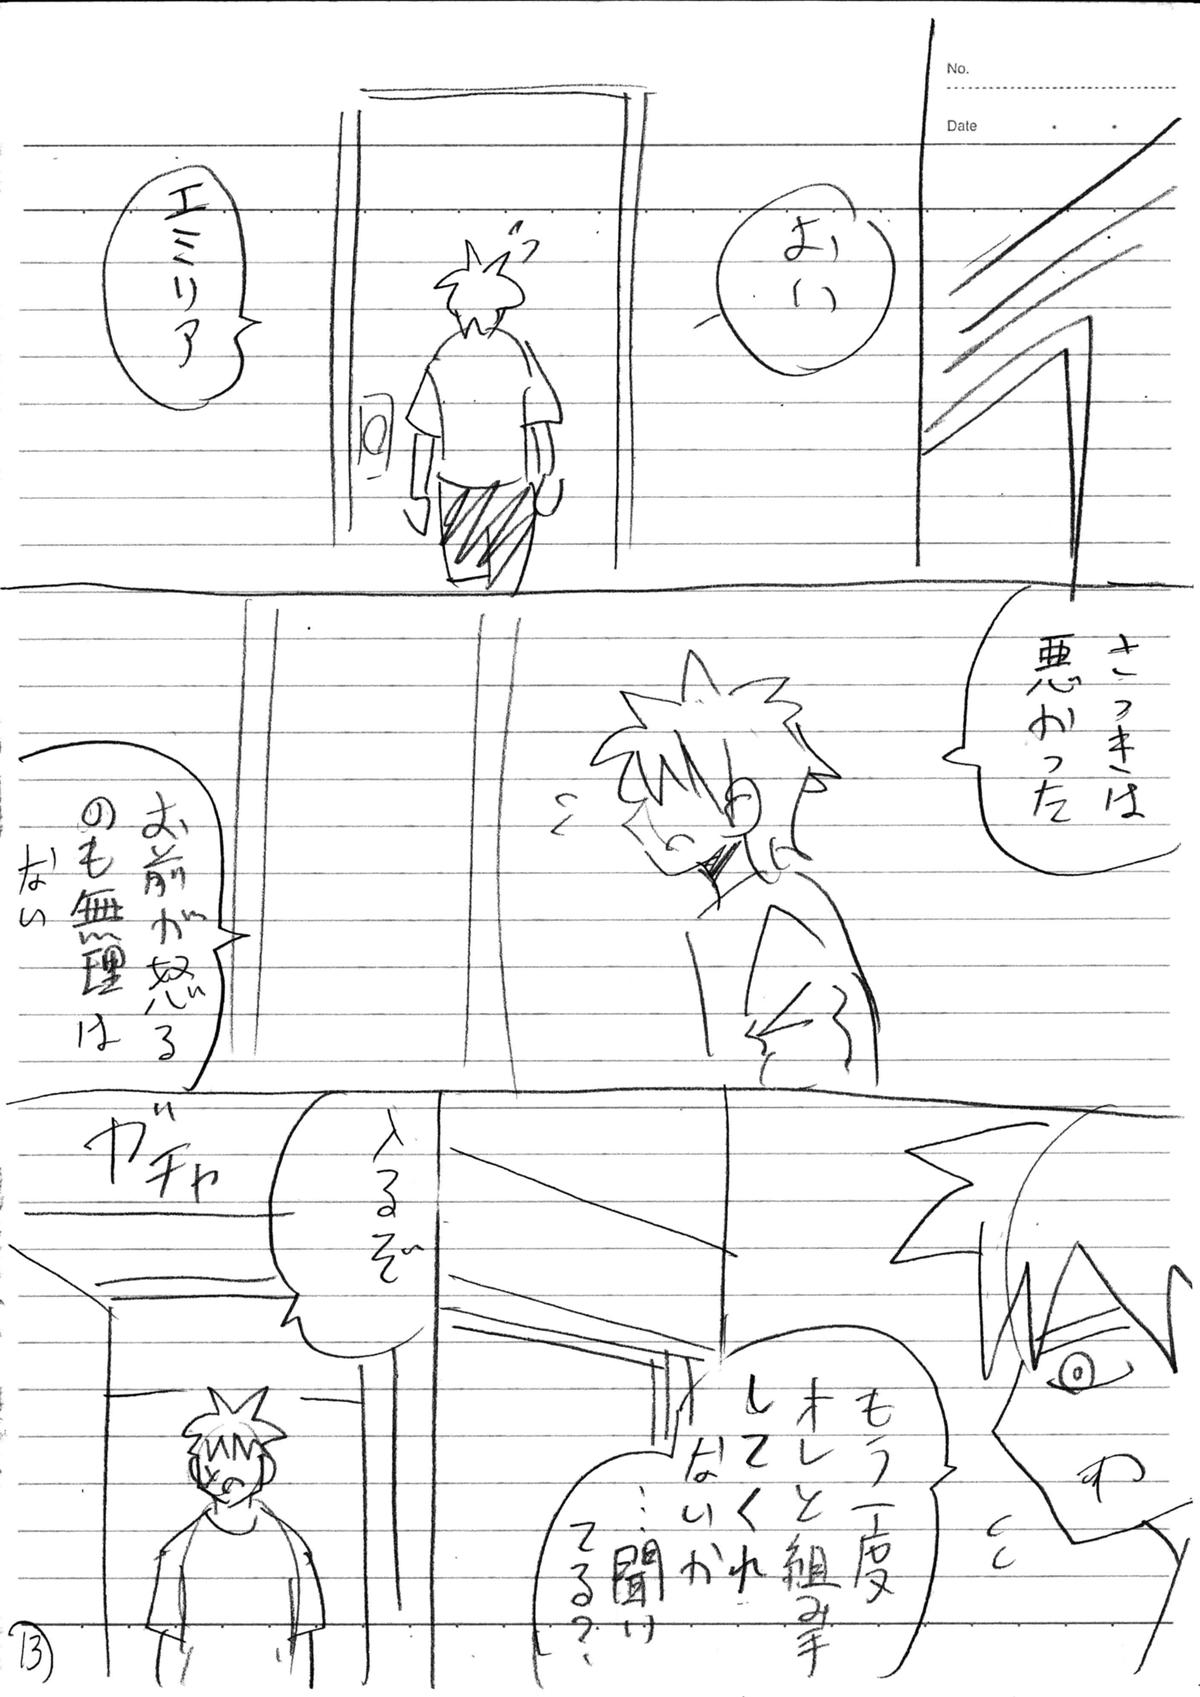 No.
Date
おい
エミリア
さっきは
悪かった
お前が怒る
のも無理は
ない
もう一度
オレと組み手
してくれ
ないか
…聞い
てる?
入るぞ
ガチャ
13